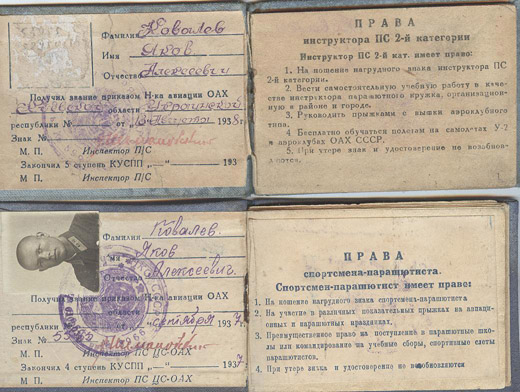 Фамилия Ковалев
Имя Яков
Отчество Алексеевич
Получил звание приказом Н-ка авиации ОАХ
области
республики № от августа 1938г.
Знак №
М. П. Инспектор П/С
Закончил 5 ступень КУСПП „ — “ 193
ПРАВА
инструктора ПС 2-й категории
Инструктор ПС 2-й кат. имеет право:
1. На ношение нагрудного знака инструктора ПС
2-й категории.
2. Вести самостоятельную учебную работу в качестве
инструктора парашютного кружка, организационную
в районе и городе.
3. Руководить прыжками с вышки аэроклубного
типа.
4. Бесплатно обучаться полетам на самолетах У-2
в аэроклубах ОАХ СССР.
5. При утере знак и удостоверение не возобновляются.
Фамилия Ковалев.
Имя Яков
Отчество Алексеевич.
Получил звание приказом Н-ка авиации ОАХ
республики № сентября 1937г.
Знак №
М. П. Инспектор ПС ЦС-ОАХ
Закончил 4 ступень КУСПП „ — “ 1937
М. П. Инспектор ПС ЦС-ОАХ
ПРАВА
спортсмена-парашютиста.
Спортсмен-парашютист имеет право:
1. На ношение нагрудного знака спортсмена-парашютиста
2. На участие в различных показательных прыжках на авиационных
и парашютных праздниках.
3. Преимущественное право на поступление в парашютные школы
или командирование на учебные сборы, спортивные слеты
парашютистов.
4. При утере знака и удостоверение не возобновляются